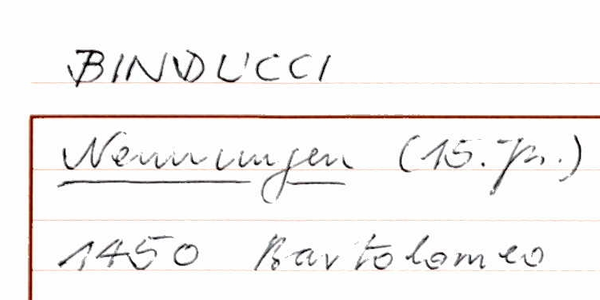 BINDUCCI
Nennungen (15. Jh.)
1450 Bartolomeo